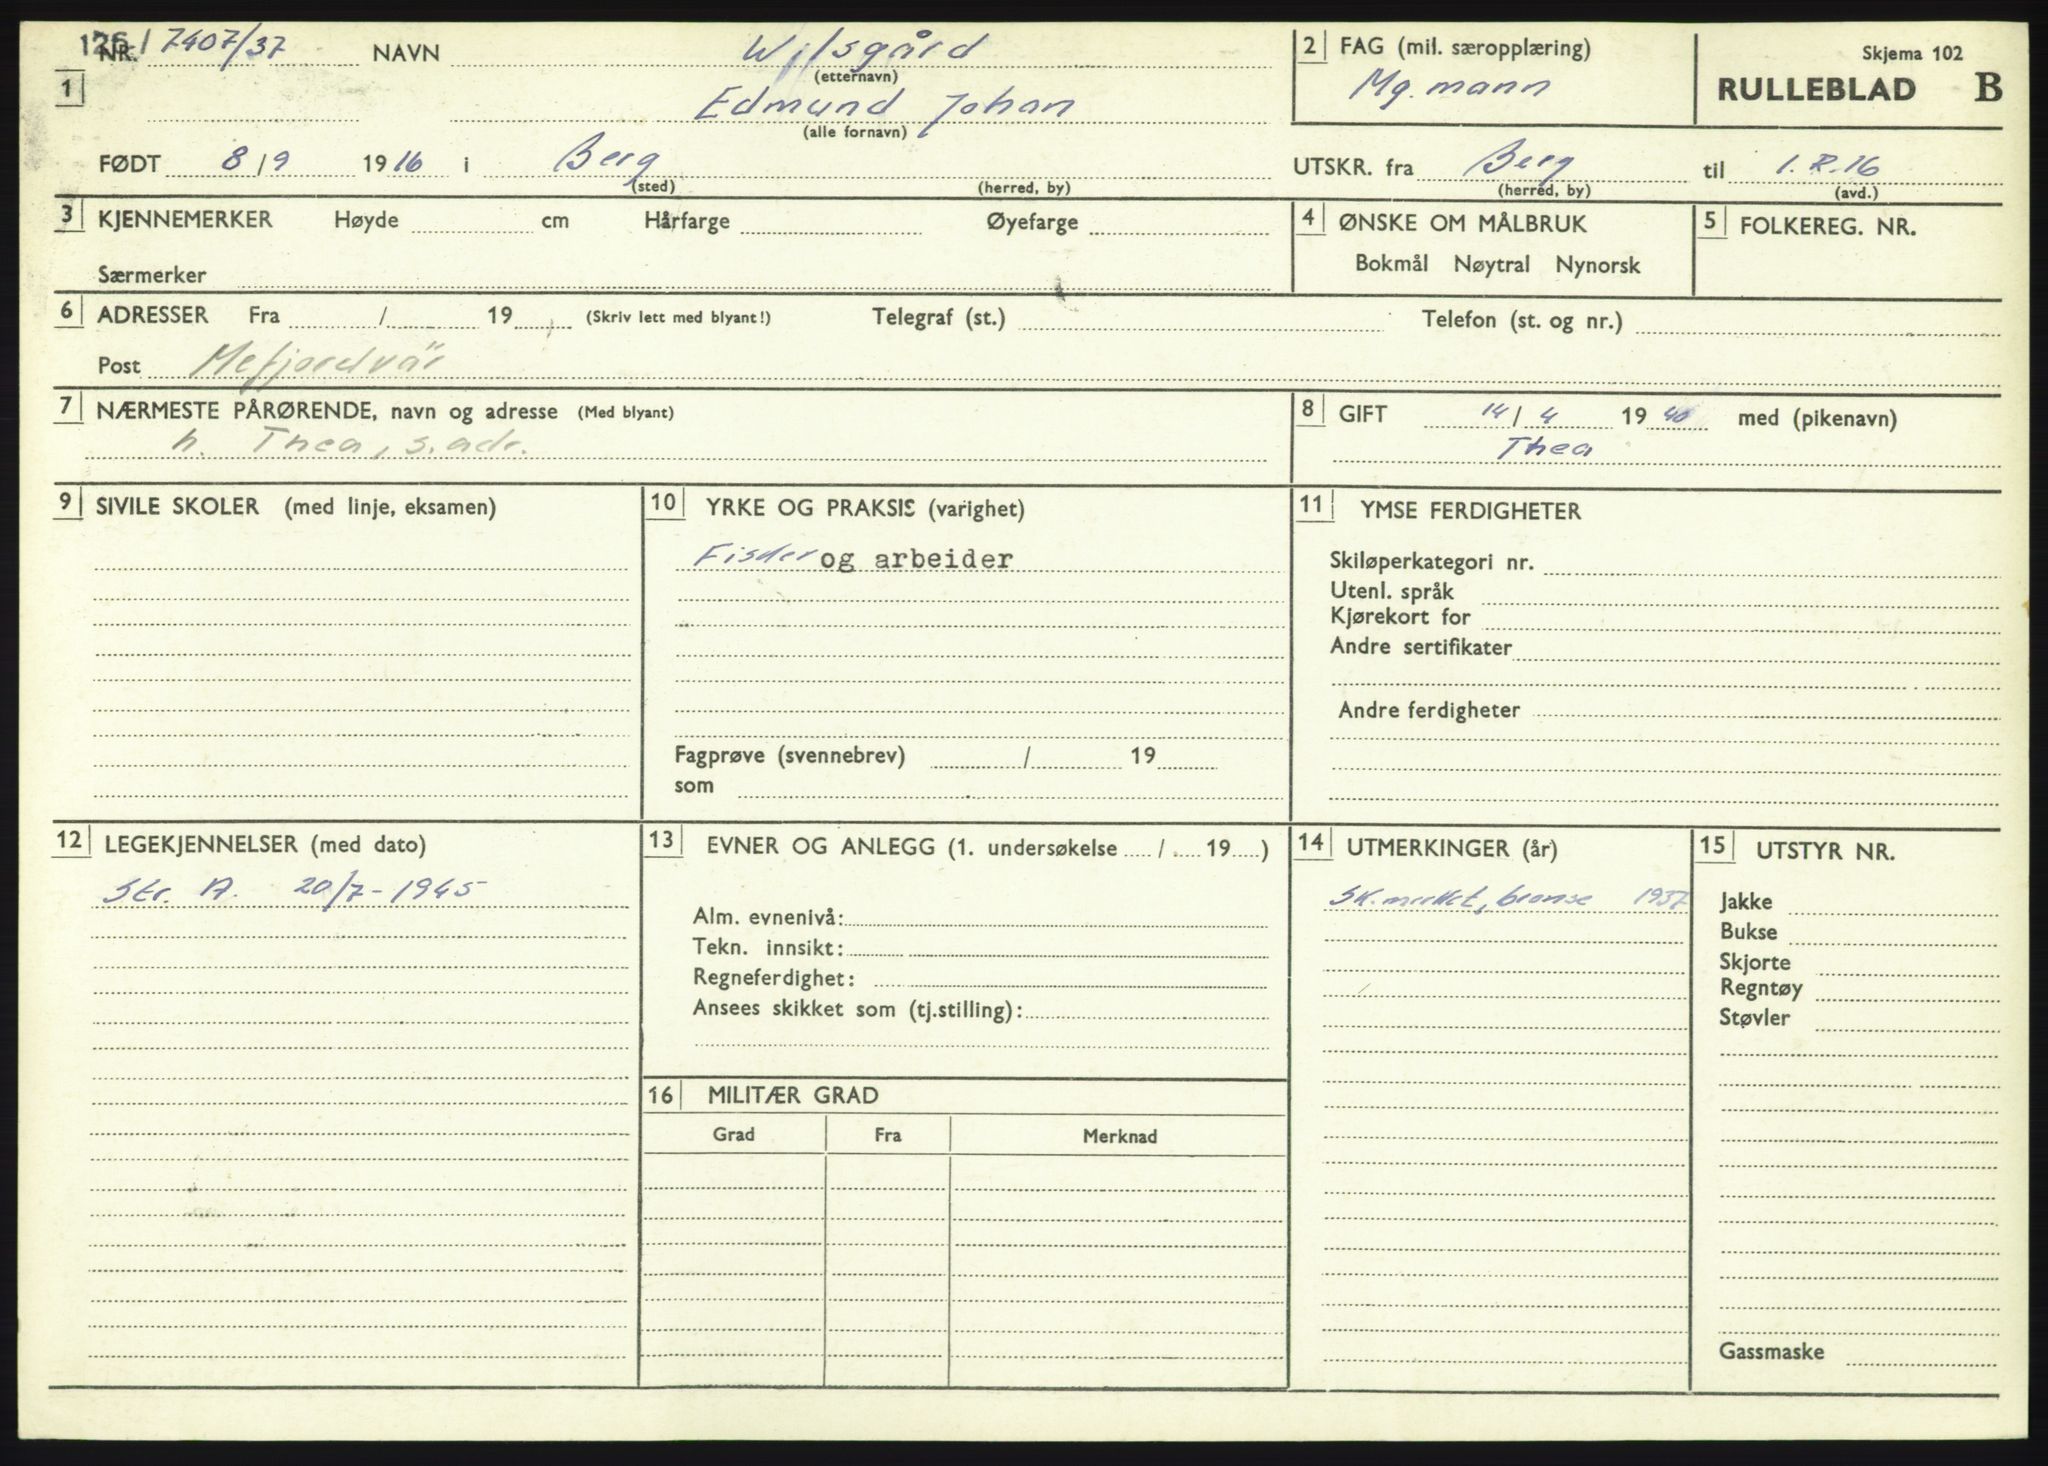 1261 7407/37 NR. NAVN Wilsgård
(etternavn)
1 Edmund Johan
(alle fornavn)
2 FAG (mil. særopplæring)
Mg. mann
Skjema 102
RULLEBLAD B
FØDT 8/9 1916 i Berg
(sted) (herred, by)
UTSKR. fra Berg til I.R. 16
(herred, by) (avd.)
3 KJENNEMERKER Høyde cm Hårfarge Øyefarge
Særmerker
4 ØNSKE OM MÅLBRUK
Bokmål Nøytral Nynorsk
5 FOLKEREG. NR.
6 ADRESSER Fra / 19 (Skriv lett med blyant!) Telegraf (st.) Telefon (st. og nr.)
Post Mefjordvär
7 NÆRMESTE PÅRØRENDE, navn og adresse (Med blyant)
h. Thea, s. adr.
8 GIFT 14/4 1940 med (pikenavn)
Thea
9 SIVILE SKOLER (med linje, eksamen)
10 YRKE OG PRAKSIS (varighet)
Fisker og arbeider
Fagprøve (svennebrev) / 19
som
11 YMSE FERDIGHETER
Skiløperkategori nr.
Utenl. språk
Kjørekort for
Andre sertifikater
Andre ferdigheter
12 LEGEKJENNELSER (med dato)
Str. A. 20/7-1945
13 EVNER OG ANLEGG (1. undersøkelse / 19 )
Alm. evnenivå:
Tekn. innsikt:
Regneferdighet:
Ansees skikket som (tj.stilling):
14 UTMERKINGER (år)
Sk.merket, bronse 1937
15 UTSTYR NR.
Jakke
Bukse
Skjorte
Regntøy
Støvler
Gassmaske
16 MILITÆR GRAD
Grad Fra Merknad